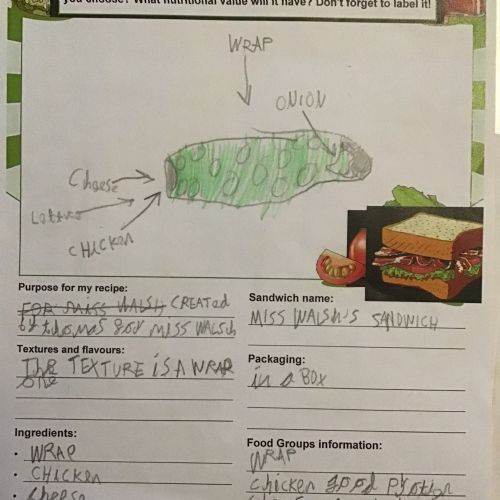 you choose? What nutritional value will it have? Don't forget to label it!
WRAP
ONION
Cheese
CHICKEN
Purpose for my recipe:
FOR MISS WALSH CREATED
by thomas FOR MISS WALSh
Sandwich name:
MISS WALSH'S SANDWICH
Textures and flavours:
THE TEXTURE iS A WRAP
one
Packaging:
in a BOX
Ingredients:
• WRAP
• CHICKEN
• Cheese
Food Groups information:
WRAP
Chicken good